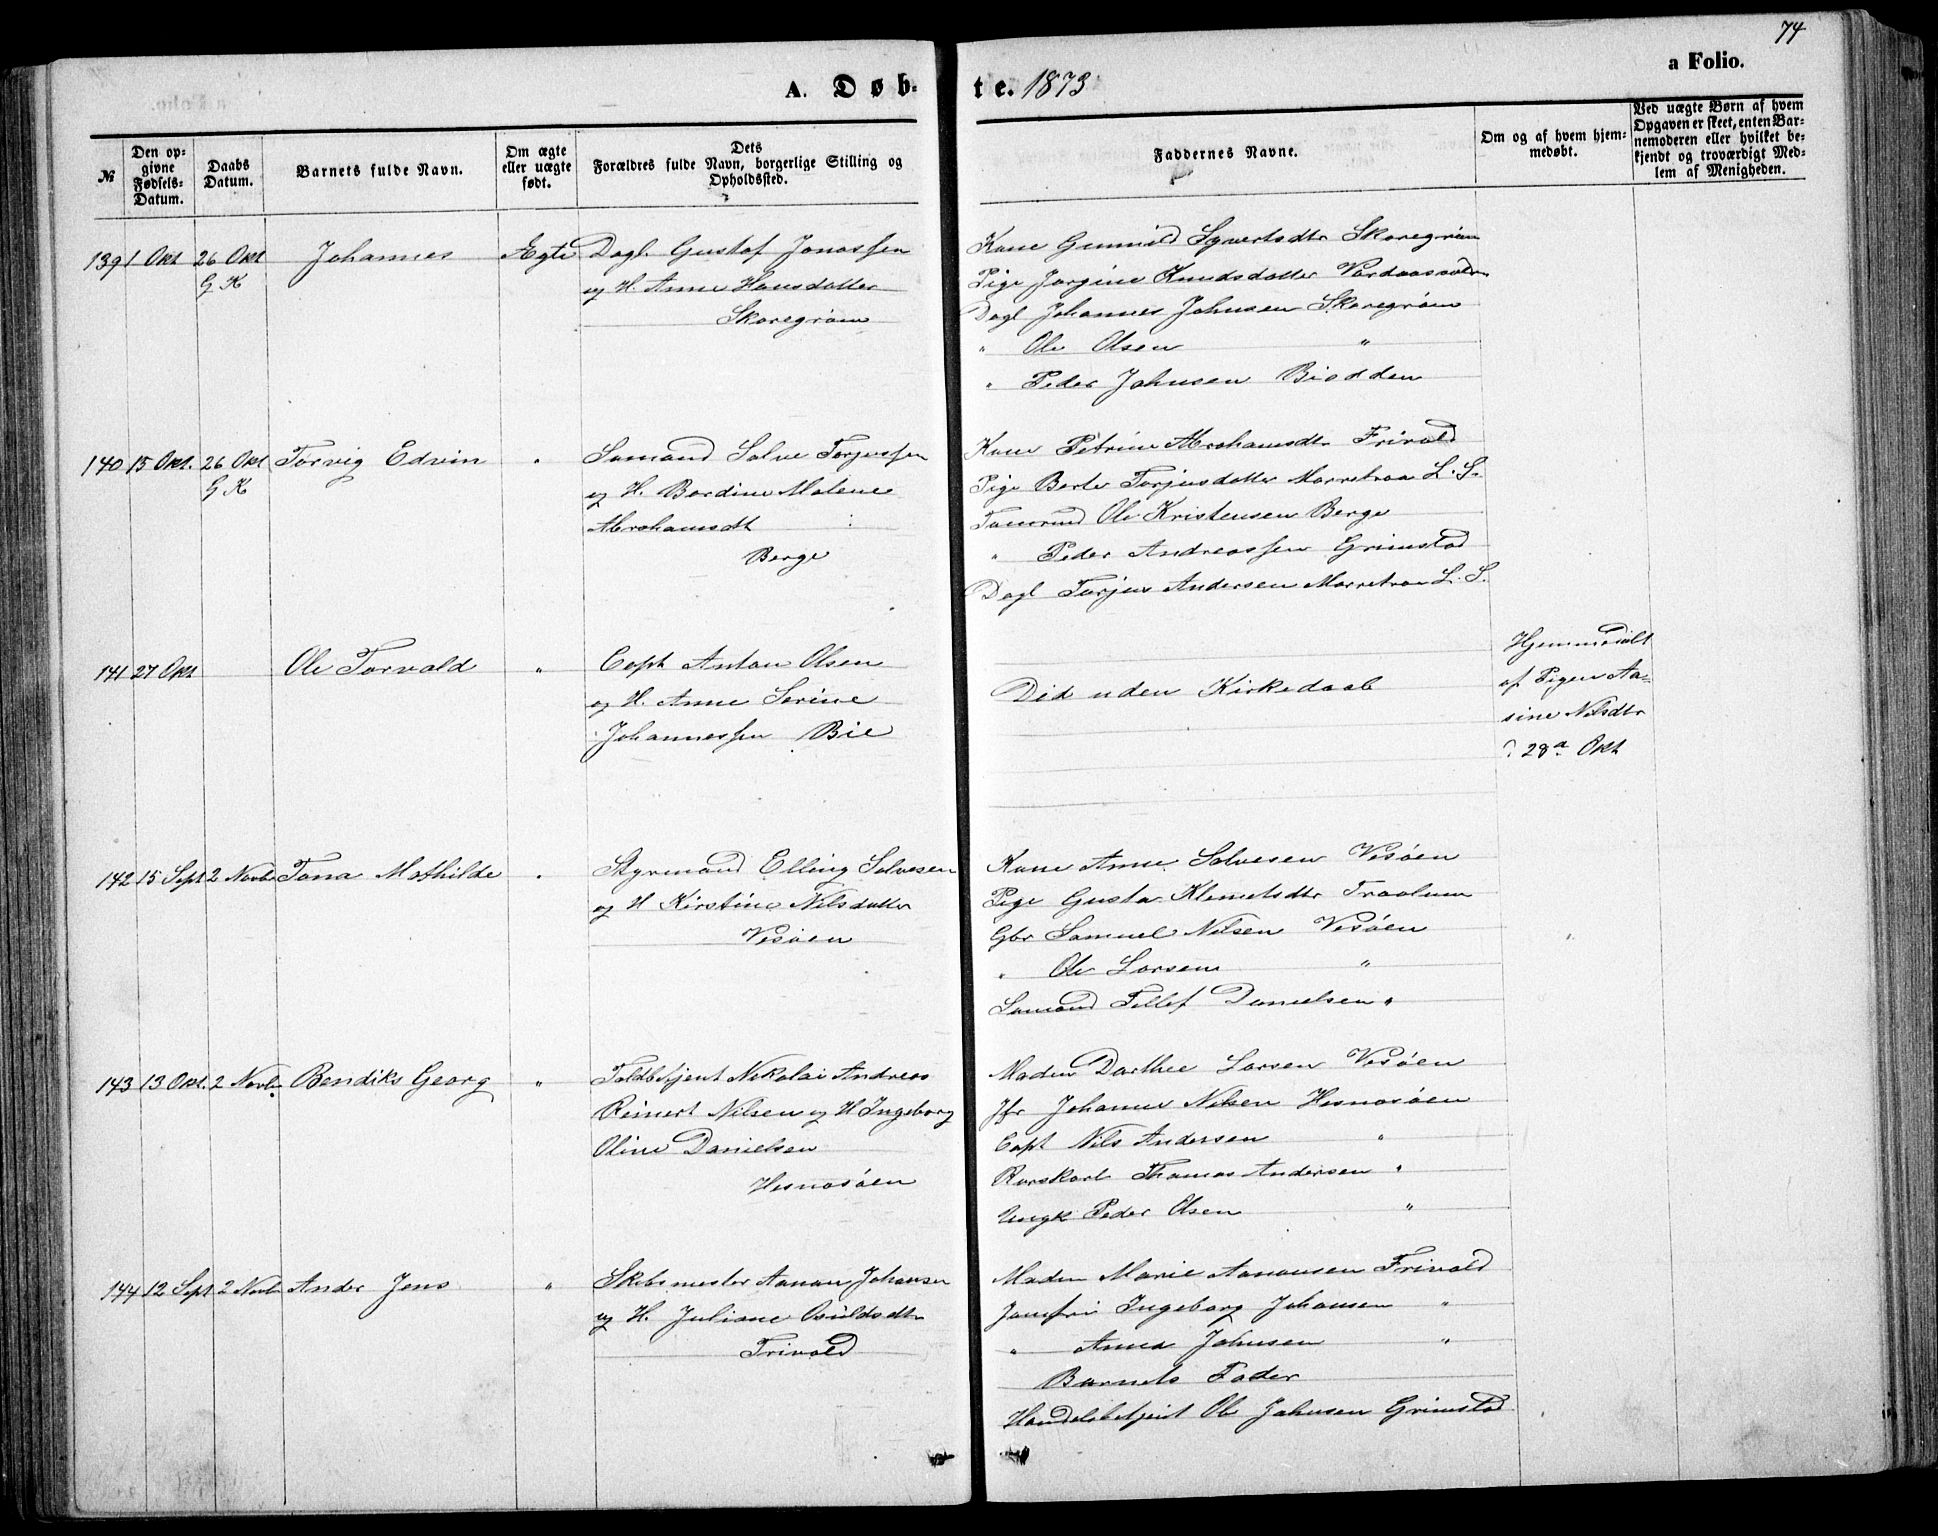 74
a Folio.
A. Døb-
te. 1873
№
Den op-
givne
Fødsels-
Datum.
Daabs
Datum.
Barnets fulde Navn.
Om ægte
eller uægte
født.
Dets
Forældres fulde Navn, borgerlige Stilling og
Opholdssted.
Faddernes Navne.
Om og af hvem hjem-
medøbt.
Ved uægte Børn af hvem
Opgaven er skeet, enten Bar-
nemoderen eller hvilket be-
kjendt og troværdigt Med-
lem af Menigheden.
139 1 Okt 26 Okt Johannes Ægte Dagl. Gustaf Jonassen
G K og H. Anne Hansdatter
Skaregrøm
Kone Gunnild Syvertsdtr Skaregrøm
Pige Jørgine Knudsdatter
Dagl Johannes Johnsen Skaregrøm
" Ole Olsen "
" Peder Johnsen Biodden
140 15 Okt. 26 Okt Torvig Edvin " Sømand Salve Torjussen
G K og H. Bardine Malene
Abrahamsdt
Berge
Kone Petrine Abrahamsdtr Frivold
Pige Berte Torjusdatter Morretraa L. S.
Tømrmd Ole Kristensen Berge
" Peder Andreassen Grimstad
Dagl Torjus Andersen Morretraa L. S.
141 27 Okt Ole Torvald " Capt Anton Olsen
og H. Anne Serine
Johannessen Bie
Død uden Kirkedaab
Hjemmedøbt
af Pigen Aa-
sine Nilsdtr
28de Okt
142 15 Sept 2 Novbr Tona Mathilde " Styrmand Elling Salvesen
og H Kirstine Nilsdatter
Vesøen
Kone Anne Salvesen Vesøen
Pige Gusta Klemetsdtr Traolum
Gbr Samuel Nilsen Vesøen
" Ole Larsen "
Sømand Tellef Danielsen "
143 13 Okt. 2 Novbr Bendiks Georg " Toldbetjent Nikolai Andreas
Reinert Nilsen og H Ingeborg
Oline Danielsen
Hesnæsøen
Maden Dorthee Larsen Vesøen
Jfr Johanne Nilsen Hesnæsøen
Capt Nils Andersen "
Rorskarl Thomas Andersen "
Ungk Peder Olsen "
144 12 Sept 2 Novbr Ander Jens " Skibsmester Aanon Johansen
og H. Juliane Osuldsdtr
Frivold
Maden Marie Aanonsen Frivold
Jomfru Ingeborg Johansen "
" Anna Johnsen "
Barnets Fader
Handelsbetjent Ole Johnsen Grimstad